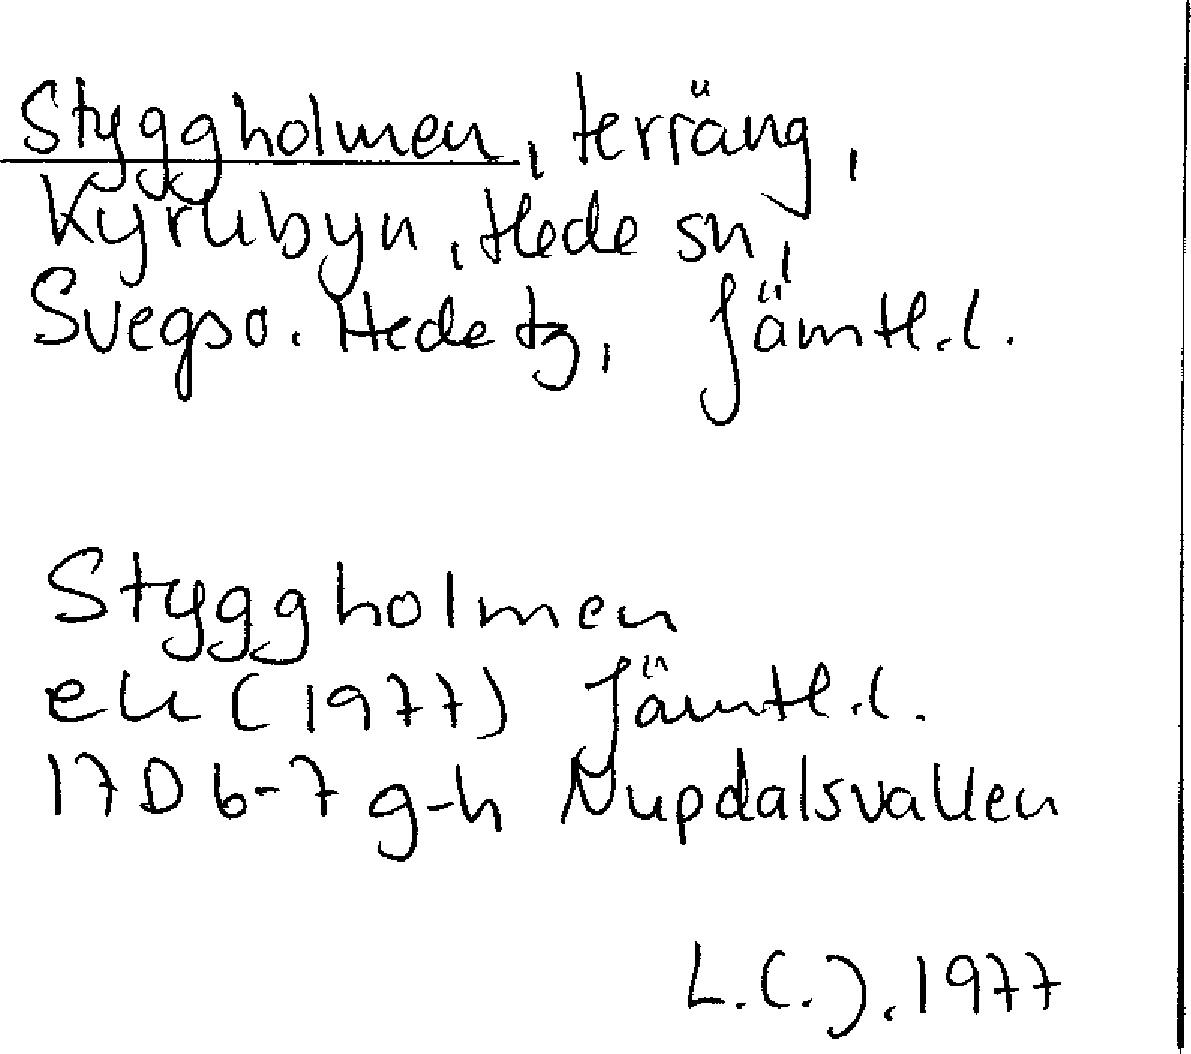 Styggholmen, terräng,
Kyrkbyn, Hede sn,
Svegs o. Hede tg, Jämtl.l.
Styggholmen
ek (1977) Jämtl.l.
17D 6-7 g-h Nupdalsvallen
L.C.J. 1977